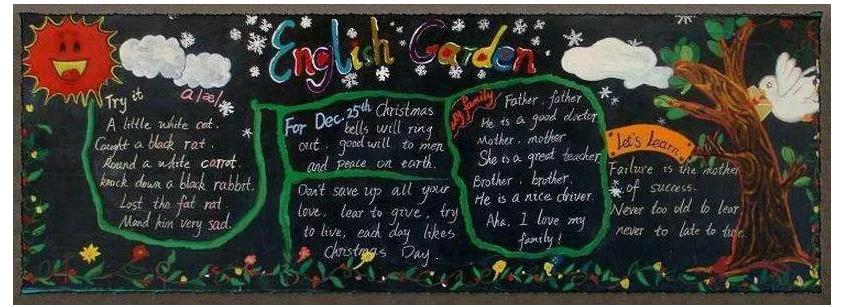 English Garden
Try it
a/æ/
A little white cat.
Caught a black rat.
Round a white carrot.
knock down a black rabbit.
Lost the fat rat.
Mand him very sad.
For Dec. 25th Christmas
bells will ring
out. good will to men
and peace on earth.
Don't save up all your
love, lear to give, try
to live, each day likes
Christmas Day.
My family
Father, father
He is a good doctor
Mother, mother
She is a great teacher
Brother, brother.
He is a nice driver
Aha, I love my
family!
Let's Learn
Failure is the mother
of success.
Never too old to lear
never to late to